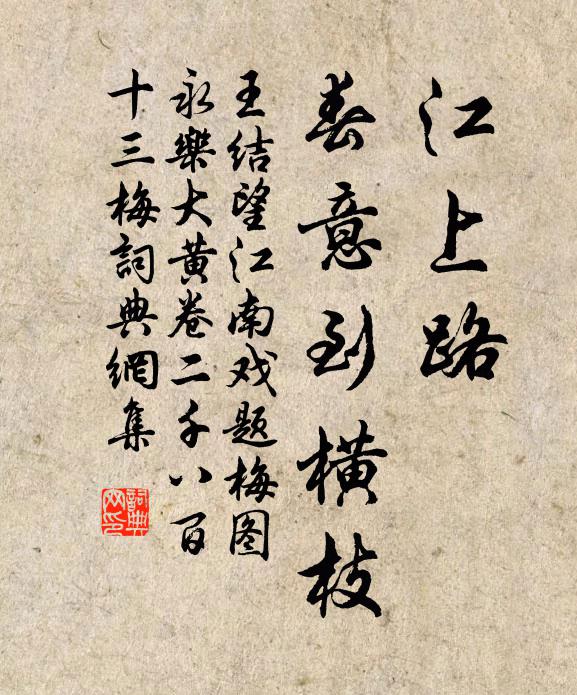 江上路
春意到橫枝
王结望江南戏题梅图
永樂大黄卷二千八百
十三梅詞典網集
詞典网印